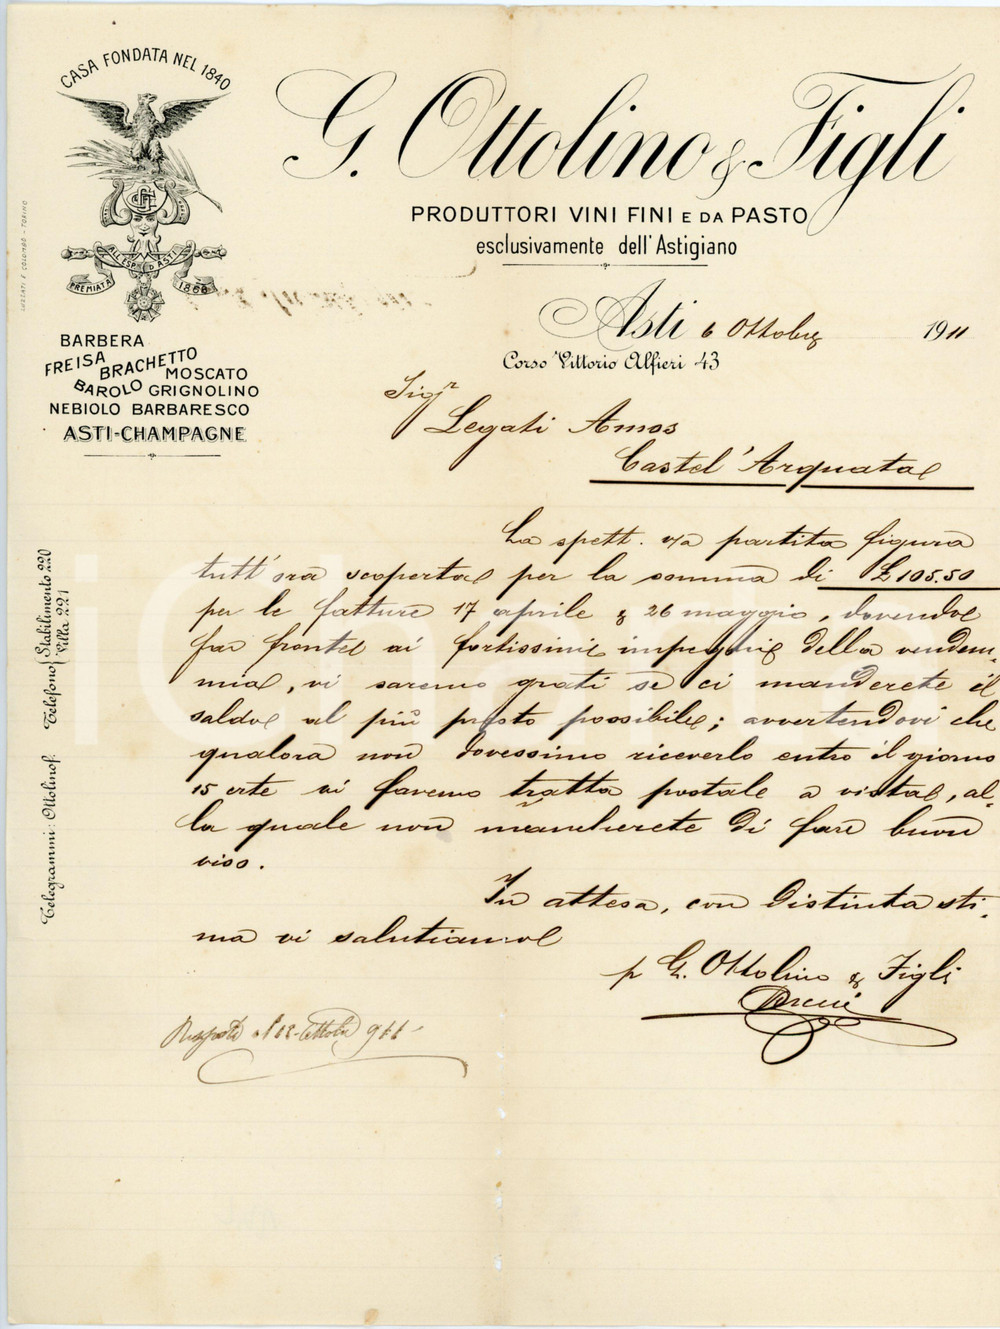 CASA FONDATA NEL 1840
ALL'ESP. D'ASTI
PREMIATA 1868
G. Ottolino & Figli
PRODUTTORI VINI FINI E DA PASTO
esclusivamente dell'Astigiano
BARBERA
FREISA BRACHETTO
MOSCATO
BAROLO GRIGNOLINO
NEBIOLO BARBARESCO
ASTI-CHAMPAGNE
LUZZATI E COLOMBO - TORINO
Telegrammi: Ottolinof. Telefono Stabilimento 220
Villa 221
Asti 6 Ottobre 1911
Corso Vittorio Alfieri 43
Sigr
Legati Amos
Castel'Arquata
La spett. va partita figura
tutt'ora scoperta per la somma di £ 105.50
per le fatture 17 aprile & 26 maggio, dovendo
far fronte ai fortissimi impegni della vendem-
mia, vi saremo grati se ci manderete il
saldo al più presto possibile; avvertendovi che
qualora non dovessimo riceverlo entro il giorno
15 crte vi faremo tratta postale a vista, al-
la quale non mancherete di fare buon
viso.
In attesa, con distinta sti-
ma vi salutiamo
p G. Ottolino & Figli
Risposto il 12 Ottobre 911
iCharta